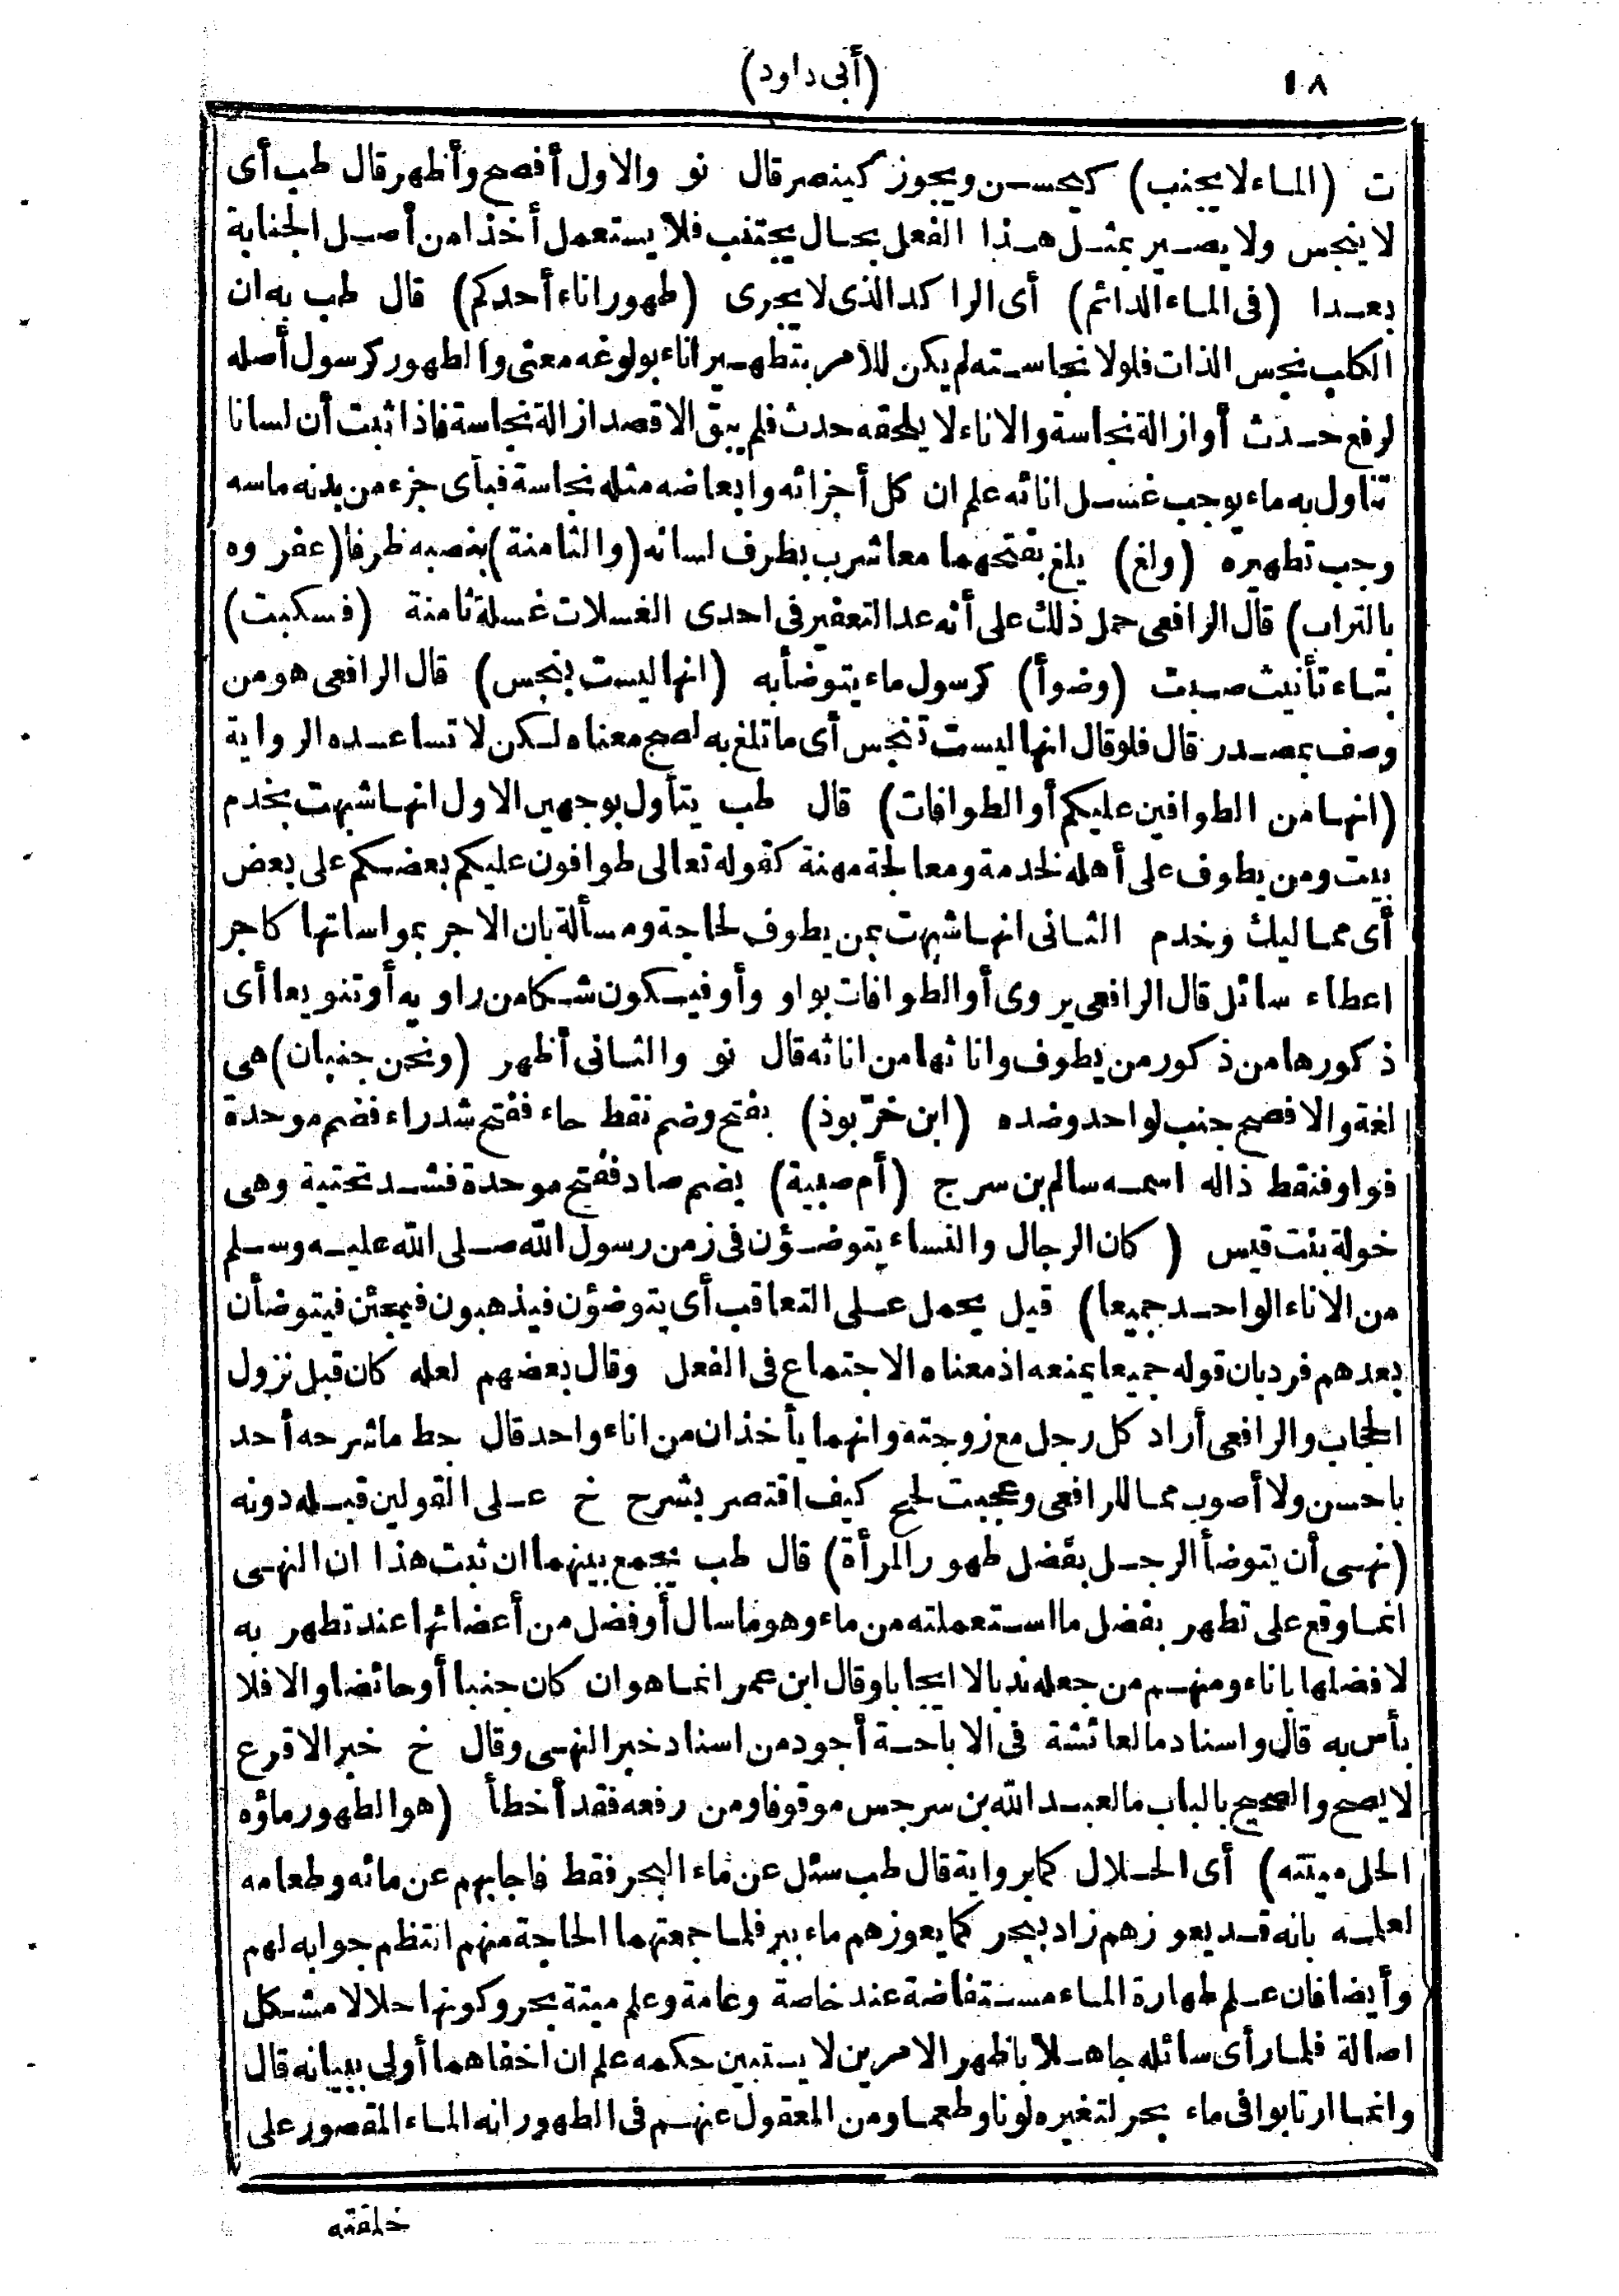 ١٨
(أبى داود)
ت (الماء لا يجنب) كيحسن ويجوز كينصر قال نو والاول أفصح وأظهر قال طب أى
لا ينجس ولا يصير بمثل هذا الفعل بحال يجتنب فلا يستعمل أخذا من أصل الجنابة
بعدا (فى الماء الدائم) أى الراكد الذى لا يجرى (طهور اناء أحدكم) قال طب به ان
الكلب نجس الذات فلولا نجاسته لم يكن للامر بتطهير اناء بولوغه معنى والطهور كرسول أصله
لرفع حدث أو ازالة نجاسة والاناء لا يلحقه حدث فلم يبق الا قصد ازالة نجاسة فاذا ثبت أن لسانا
تناول به ماء يوجب غسل انائه علم ان كل أجزائه وابعاضه مثله نجاسة فبأى جزء من بدنه ماسه
وجب تطهيره (ولغ) يلغ بفتحهما معا شرب بطرف لسانه (والثامنة) بنصبه ظرفا (عفروه
بالتراب) قال الرافعى حمل ذلك على أنه عد التعفير فى احدى الغسلات غسلة ثامنة (فسكبت)
بتاء تأنيث صبت (وضوأ) كرسول ماء يتوضأ به (انها ليست بنجس) قال الرافعى هو من
وصف بمصدر قال فلو قال انها ليست تنجس أى ما تلغ به لصح معناه لكن لا تساعده الرواية
(انها من الطوافين عليكم أو الطوافات) قال طب يتأول بوجهين الاول انها شبهت بخدم
بيت ومن يطوف على أهله لخدمة ومعالجة مهنة كقوله تعالى طوافون عليكم بعضكم على بعض
أى مماليك وخدم الثانى انها شبهت بمن يطوف لحاجة ومسألة بان الاجر بمواساتها كاجر
اعطاء سائل قال الرافعى يروى أو الطوافات بواو وأو فيكون شكا من راويه أو تنويعا أى
ذكورها من ذكور من يطوف واناثها من اناثه قال نو والثانى أظهر (ونحن جنبان) هى
لغة والافصح جنب لواحد وضده (ابن خرّبوذ) بفتح وضم نقط حاء ففتح شد راء فضم موحدة
فواو فنقط ذاله اسمه سالم بن سرج (أم صبية) بضم صاد ففتح موحدة فشد تحتية وهى
خولة بنت قيس (كان الرجال والنساء يتوضؤن فى زمن رسول الله صلى الله عليه وسلم
من الاناء الواحد جميعا) قيل يحمل على التعاقب أى يتوضؤن فيذهبون فيجئن فيتوضأن
بعدهم فرد بان قوله جميعا يمنعه اذ معناه الاجتماع فى الفعل وقال بعضهم لعله كان قبل نزول
الحجاب والرافعى أراد كل رجل مع زوجته وانهما يأخذان من اناء واحد قال جط ما شرحه أحد
باحسن ولا أصوب مما للرافعى وعجبت لحج كيف اقتصر بشرح خ على القولين قبله دونه
(نهى أن يتوضأ الرجل بفضل طهور المرأة) قال طب يجمع بينهما ان ثبت هذا ان النهى
انما وقع على تطهر بفضل ما استعملته من ماء وهو ما سال أو فضل من أعضائها عند تطهر به
لا فضلها باناء ومنهم من جعله ندبا لا ايجابا وقال ابن عمر انما هو ان كان جنبا أو حائضا والا فلا
بأس به قال واسناد ما لعائشة فى الاباحة أجود من اسناد خبر النهى وقال خ خبر الاقرع
لا يصح والصحيح بالباب ما لعبد الله بن سرجس موقوفا ومن رفعه فقد أخطأ (هو الطهور ماؤه
الحل ميتته) أى الحلال كما برواية قال طب سئل عن ماء البحر فقط فاجابهم عن مائه وطعامه
لعلمه بانه قد يعوزهم زاد ببحر كما يعوزهم ماء ببر فلما جمعتهما الحاجة منهم انتظم جوابه لهم
وأيضا فان علم طهارة الماء مستفاضة عند خاصة وعامة وعلم ميتة بحر وكونها حلالا مشكل
اصالة فلما رأى سائله جاهلا باظهر الامرين لا يستبين حكمه علم ان اخفاهما أولى ببيانه قال
وانما ارتابوا فى ماء بحر لتغيره لونا وطعما ومن المعقول عنهم فى الطهور انه الماء المقصور على
خلقته